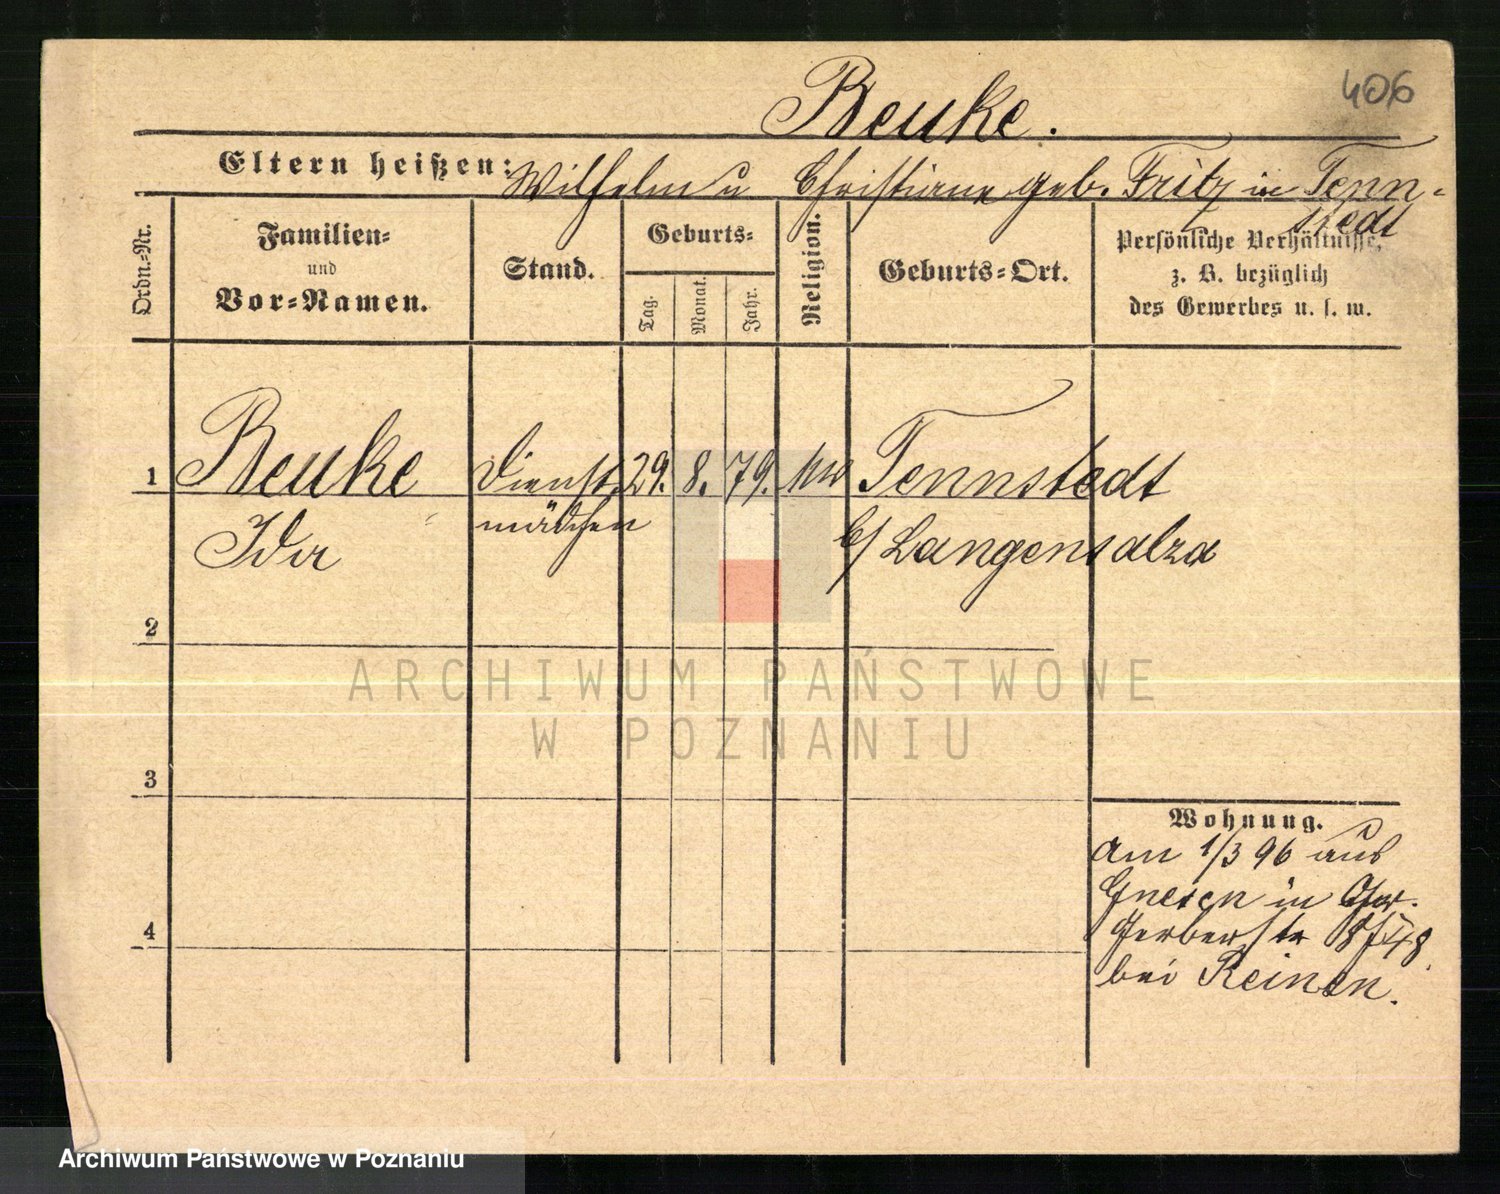 406
Beuke.
Eltern heißen: Wilhelm u Christiane geb. Fritz in Tenn-
stedt
Ordn.-Nr.
Familien-
und
Vor-Namen.
Stand.
Geburts-
Tag.
Monat.
Jahr.
Religion.
Geburts-Ort.
Persönliche Verhältnisse,
z. B. bezüglich
des Gewerbes u. s. w.
1 Beuke Dienst 29. 8. 79. Tennstedt
Ida mädchen b/ Langensalza
2
3
4
Wohnung.
Am 1/3 96 aus
Gnesen in
Gerberstr 8
bei Reinen.
ARCHIWUM PAŃSTWOWE
W POZNANIU
Archiwum Państwowe w Poznaniu